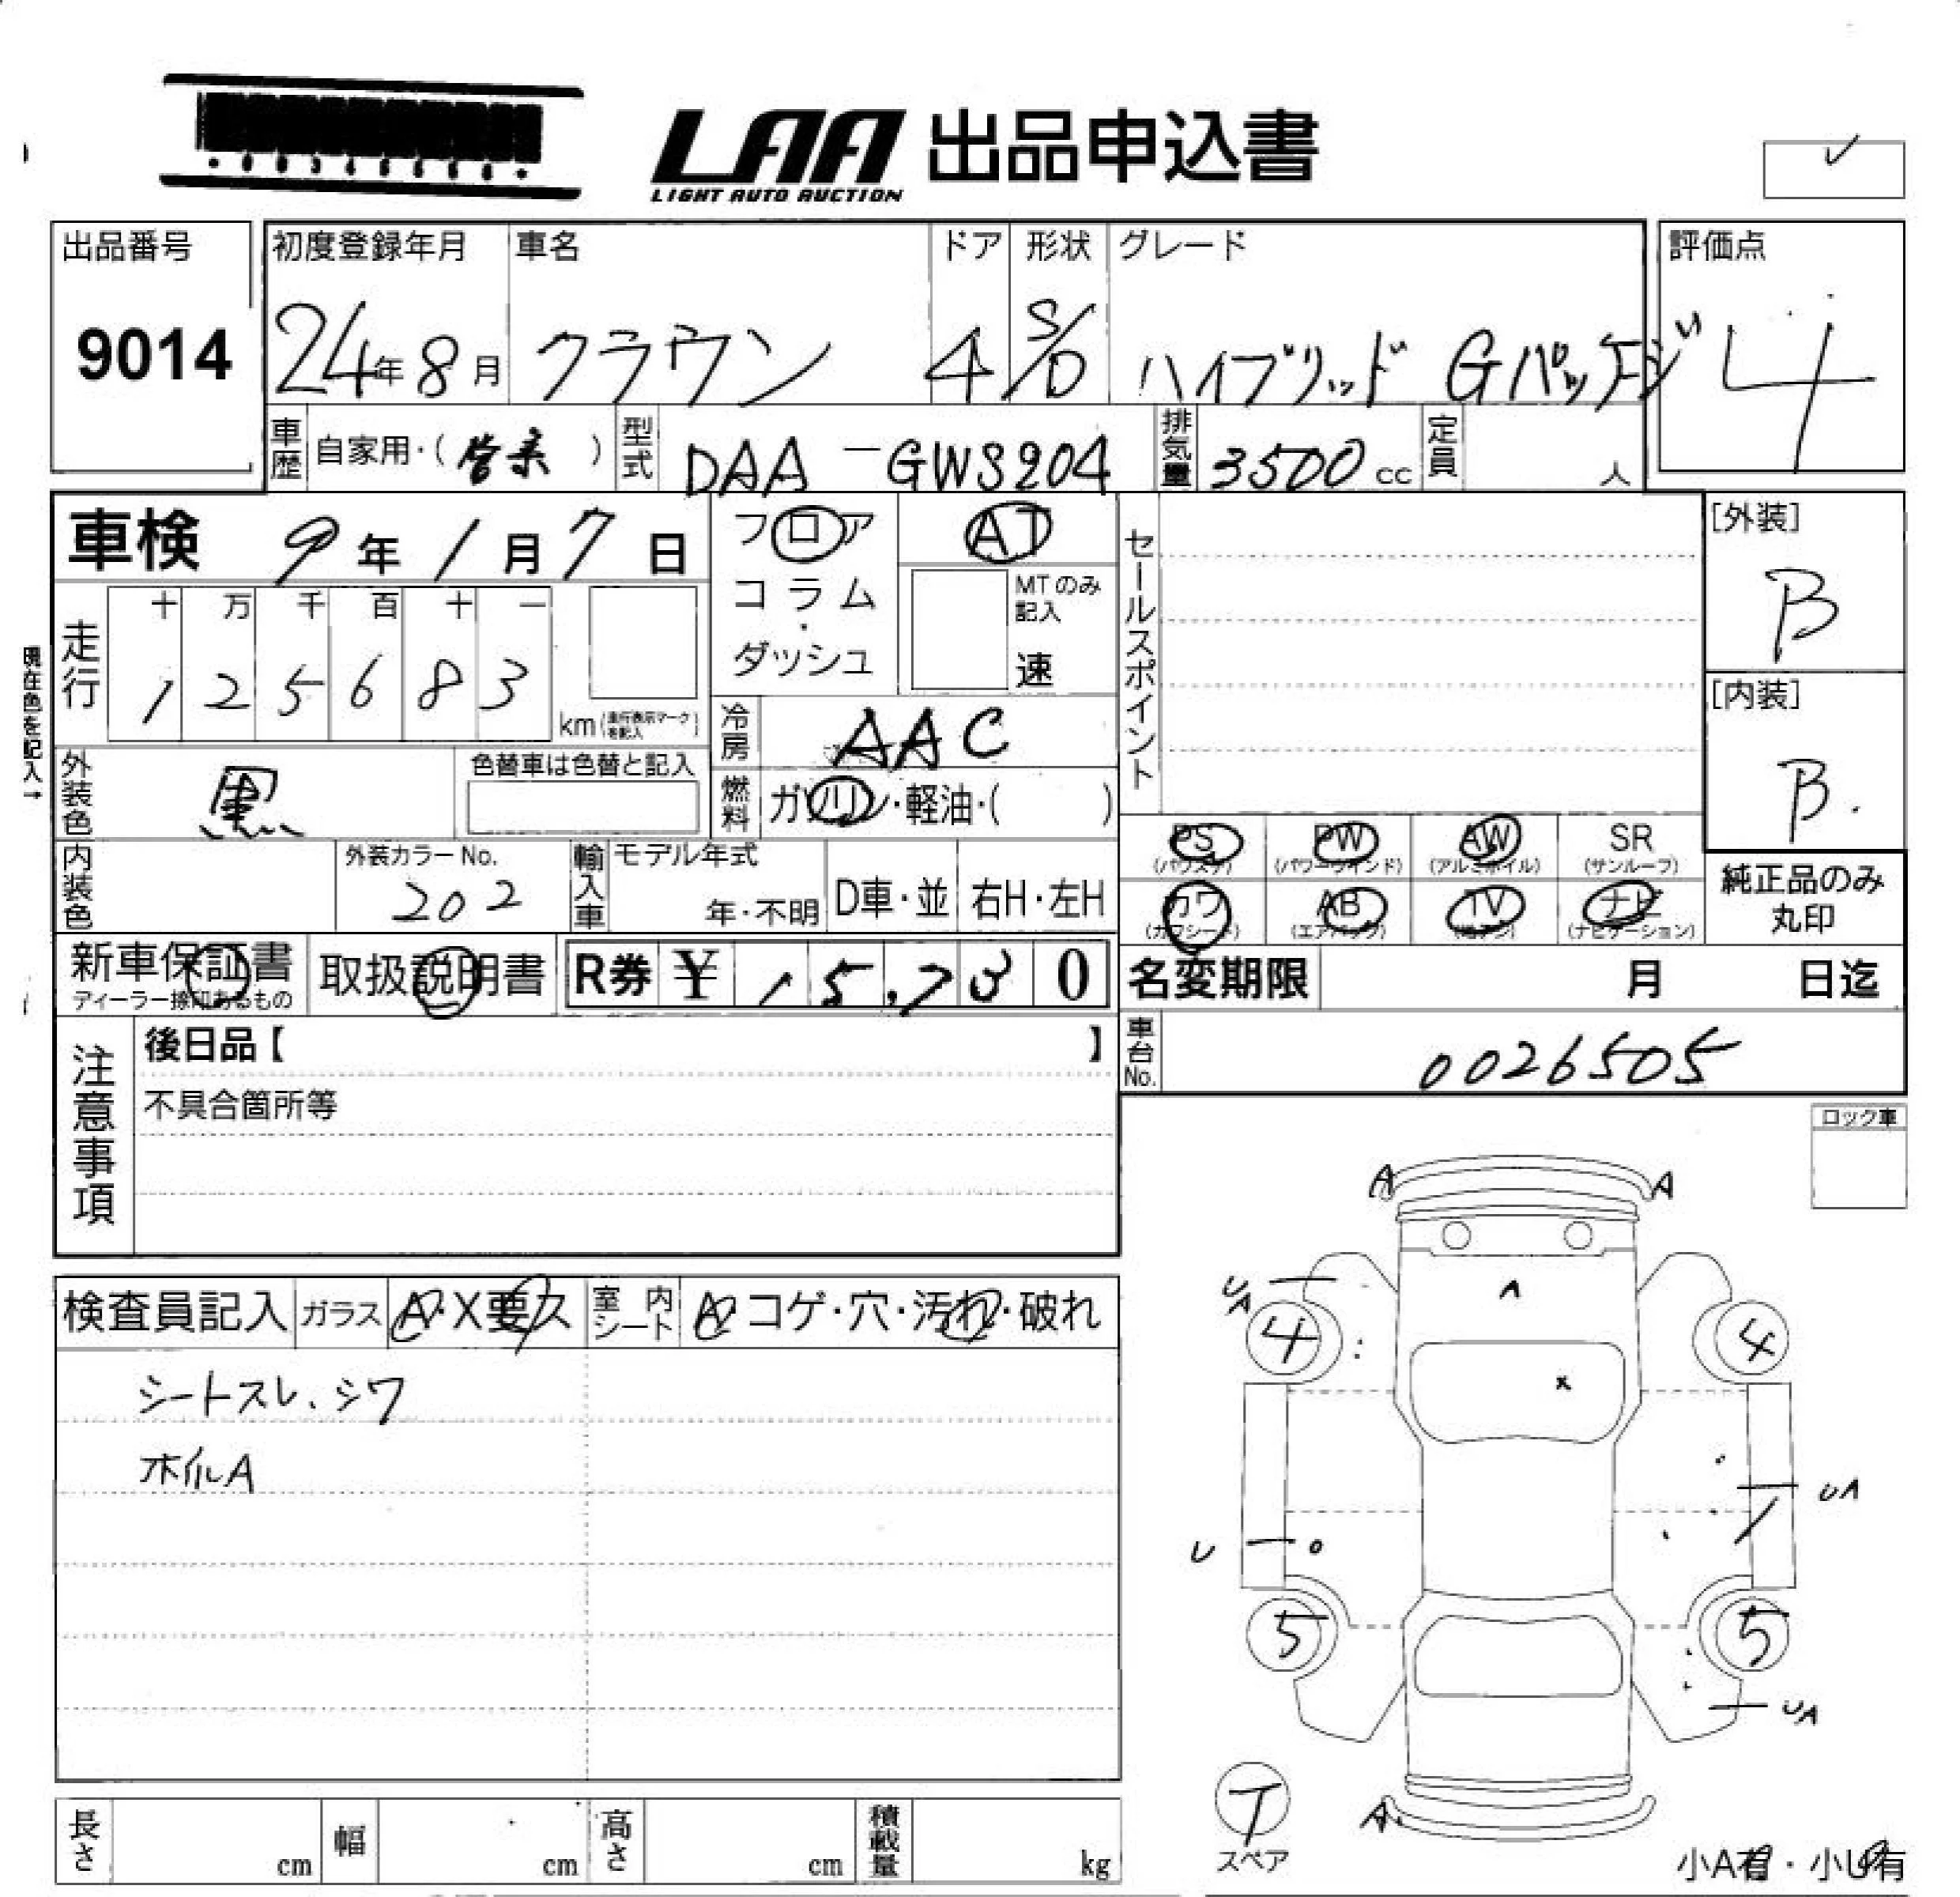 LAA 出品申込書
LIGHT AUTO AUCTION
出品番号
9014
初度登録年月 車名 ドア 形状 グレード
24年8月 クラウン 4 S/D ハイブリッド Gパッケージ
評価点
4
車歴 自家用・( ) 型式 DAA-GWS204 排気量 3500cc 定員 人
車検 9年1月7日
フロア AT
コラム・ダッシュ
MTのみ記入
速
セールスポイント
[外装]
B
[内装]
B.
現在色を記入→
走行 十 万 千 百 十 一
1 2 5 6 8 3
km(走行表示マークを記入)
冷房 AAC
外装色 黒 色替車は色替と記入
燃料 ガソリン・軽油・( )
内装色 外装カラーNo.
202
輸入車 モデル年式
年・不明 D車・並 右H・左H
PS PW AW SR
(パワステ) (パワーウインド) (アルミホイル) (サンルーフ)
カワ AB TV ナビ
(カワシート) (エアバック) (ナビゲーション)
純正品のみ
丸印
新車保証書 取扱説明書 R券 ¥ 15,730
ディーラー捺印あるもの
名変期限 月 日迄
車台No. 0026505
注意事項
後日品【 】
不具合箇所等
ロック車
A A
UA
A
4 4
x
UA
U
5 5
UA
T
スペア
A
小A有・小U有
検査員記入 ガラス A・X要ス 室内シート A・コゲ・穴・汚れ・破れ
シートスレ、シワ
ホイルA
長さ cm 幅 cm 高さ cm 積載量 kg